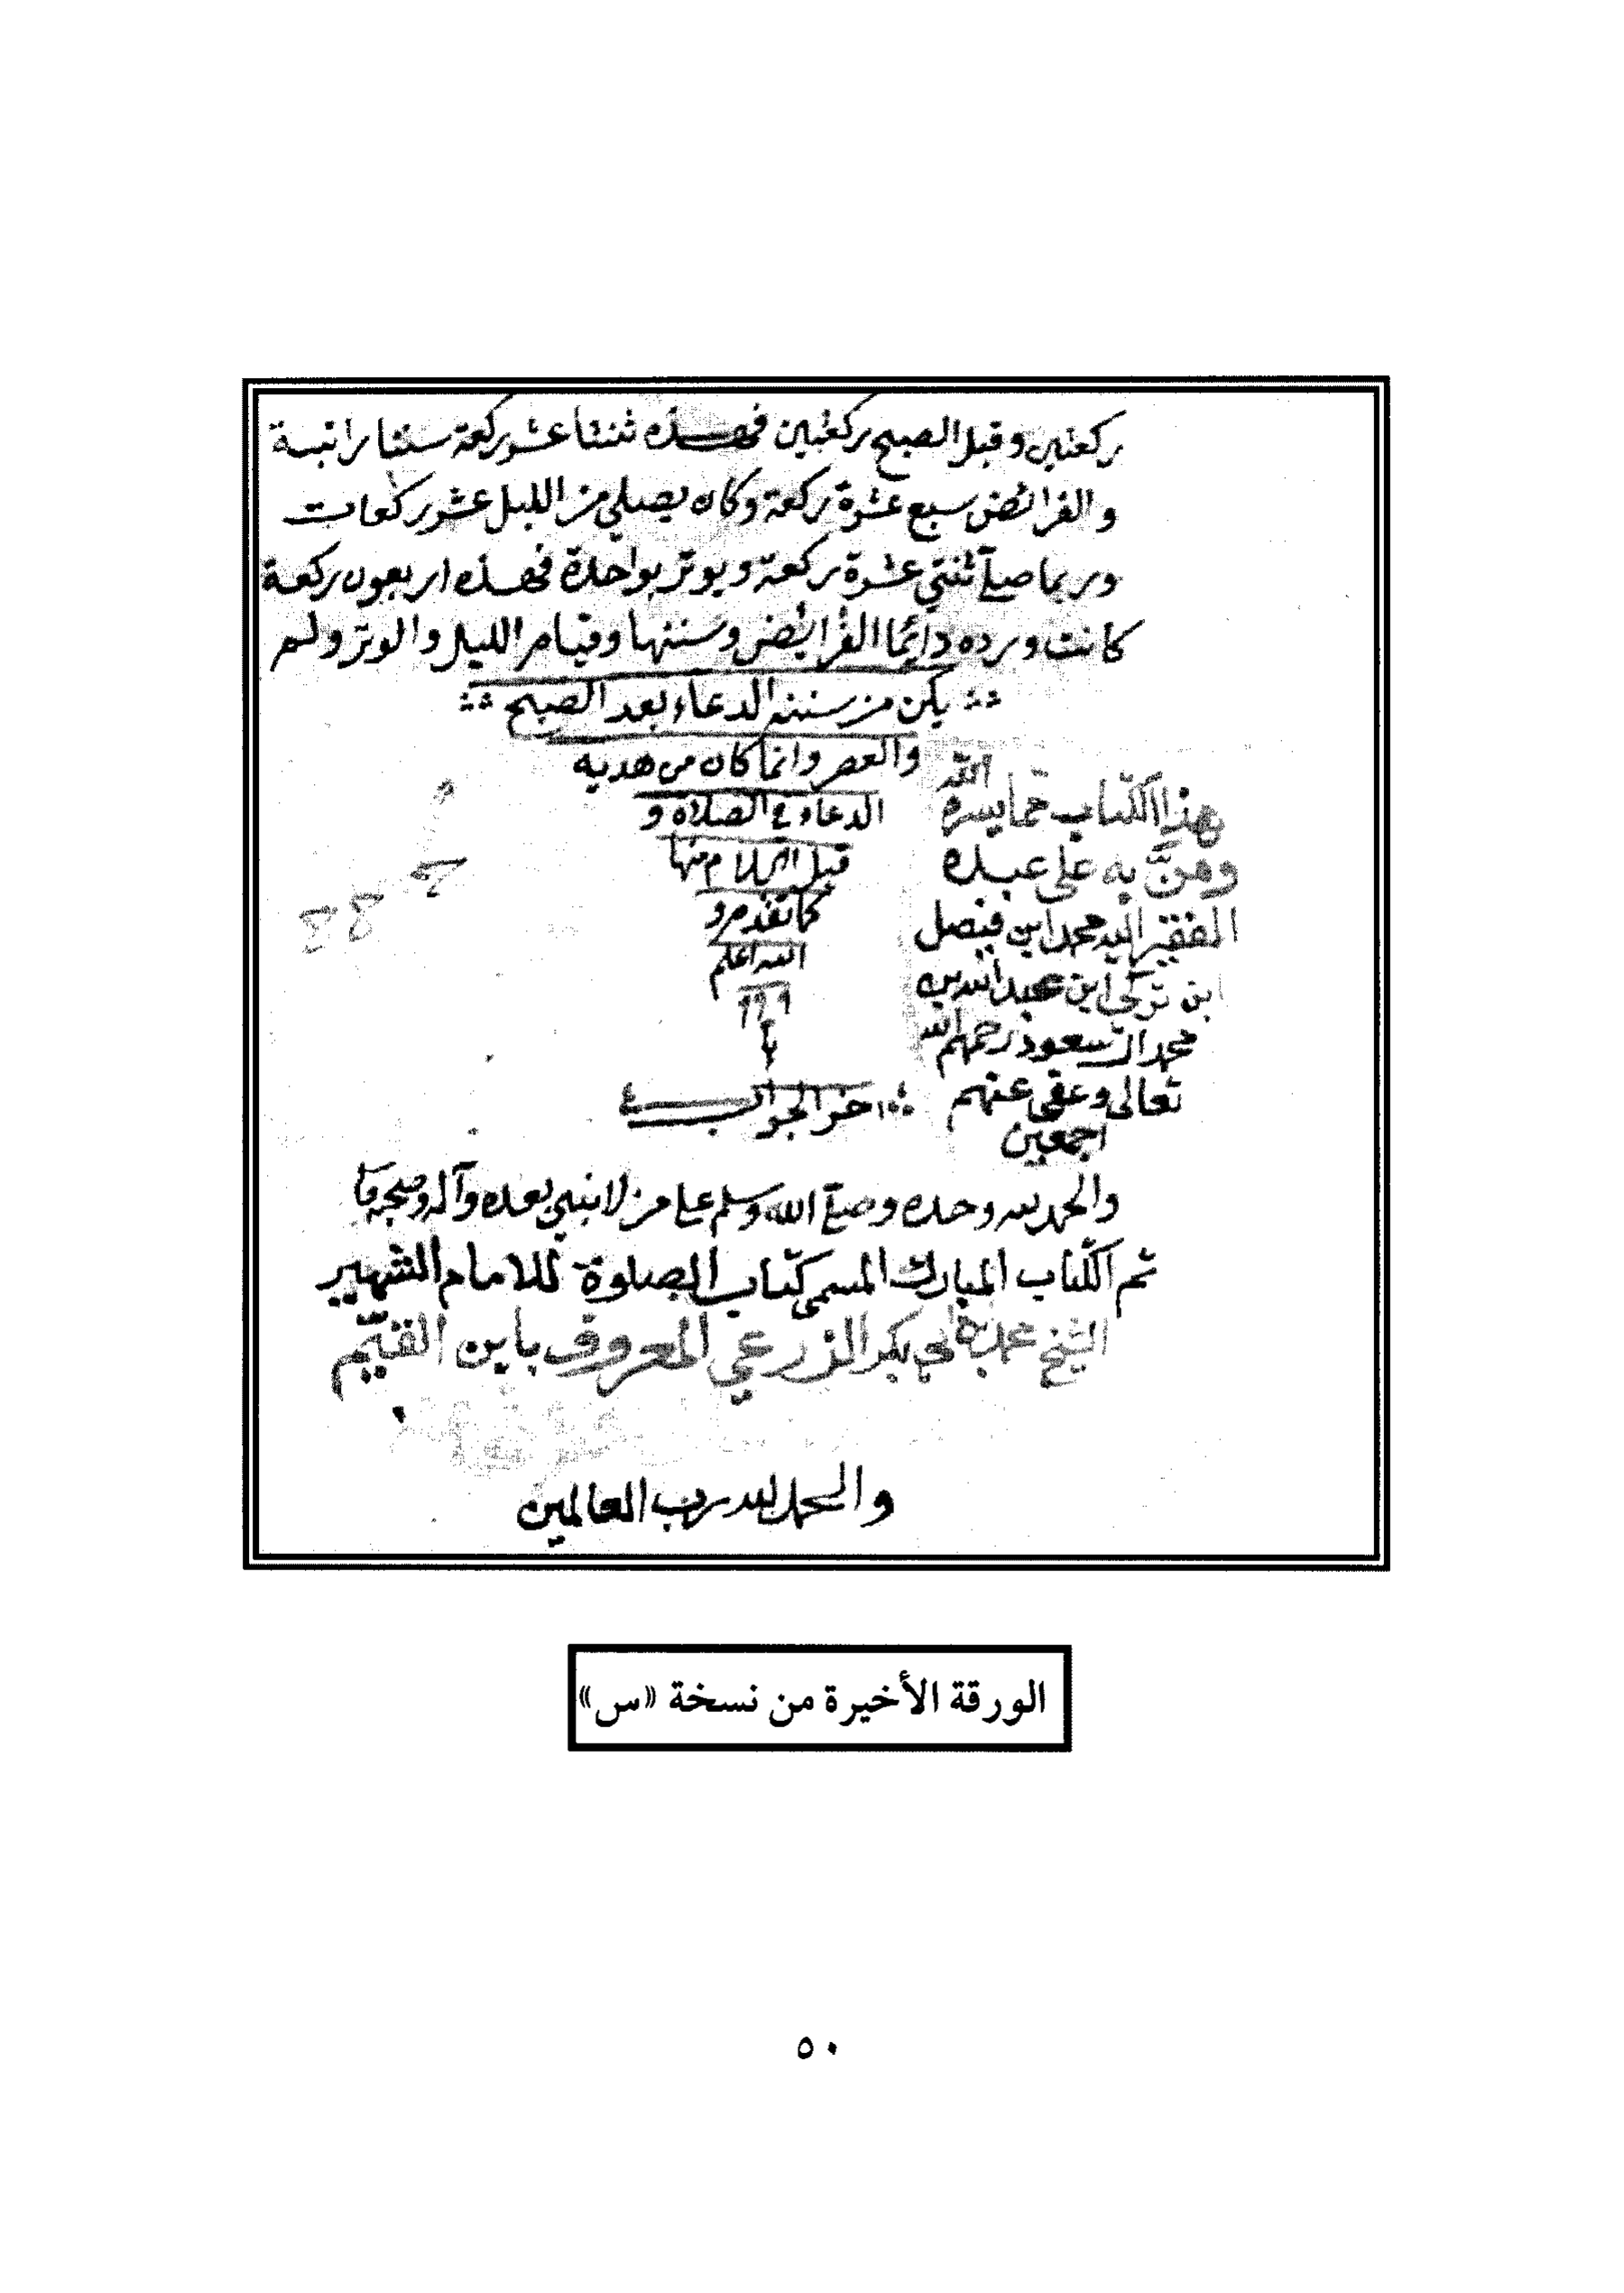 ركعتين وقبل الصبح ركعتين فهذه ثنتا عشر ركعة سننا راتبة
والفرائض سبع عشرة ركعة وكان يصلي من الليل عشر ركعات
وربما صلى ثنتي عشرة ركعة ويوتر بواحدة فهذه اربعون ركعة
كانت ورده دائما الفرائض وسننها وقيام الليل والوتر ولم
يكن من سننه الدعاء بعد الصبح
والعصر وانما كان من هديه
الدعاء في الصلاة و
قبل السلام منها
كما تقدم و
الله اعلم
اخر الجواب
هذا الكتاب مما يسره الله
ومنَّ به على عبده
الفقير اليه محمد ابن فيصل
ابن تركي ابن عبد الله بن
محمد ال سعود رحمهم الله
تعالى وعفى عنهم
اجمعين
والحمد لله وحده وصلى الله وسلم على من لا نبي بعده وآله وصحبه
تم الكتاب المبارك المسمى كتاب الصلوة للامام الشهير
الشيخ محمد بن ابي بكر الزرعي المعروف باين القيّم
والحمد لله رب العالمين
الورقة الأخيرة من نسخة «س»
٥٠